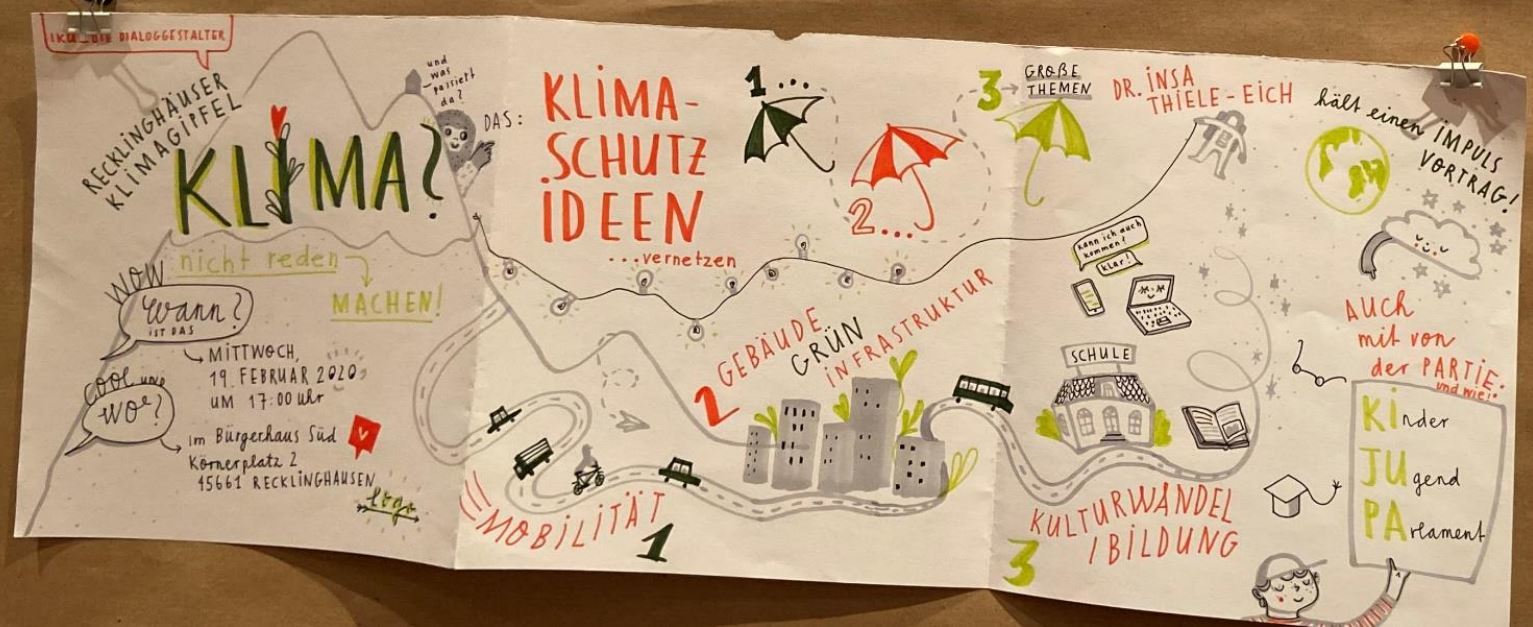 IKU_DIE DIALOGGESTALTER
RECKLINGHÄUSER
KLIMAGIPFEL
KLIMA?
und
was
passiert
da?
DAS:
nicht reden
MACHEN!
WOW
Wann?
IST DAS
MITTWOCH,
19. FEBRUAR 2020
UM 17:00 uhr
COOL und
WO?
im Bürgerhaus Süd
Körnerplatz 2
45661 RECKLINGHAUSEN
logo
KLIMA-
SCHUTZ
IDEEN
...vernetzen
1...
2...
3
GROßE
THEMEN
DR. INSA
THIELE-EICH
hält einen IMPULS
VORTRAG!
MOBILITÄT
1
2 GEBÄUDE
GRÜN
INFRASTRUKTUR
kann ich auch
kommen?
klar!
SCHULE
KULTURWANDEL
/BILDUNG
3
AUCH
mit von
der PARTIE:
und wie!
KInder
JUgend
PArlament